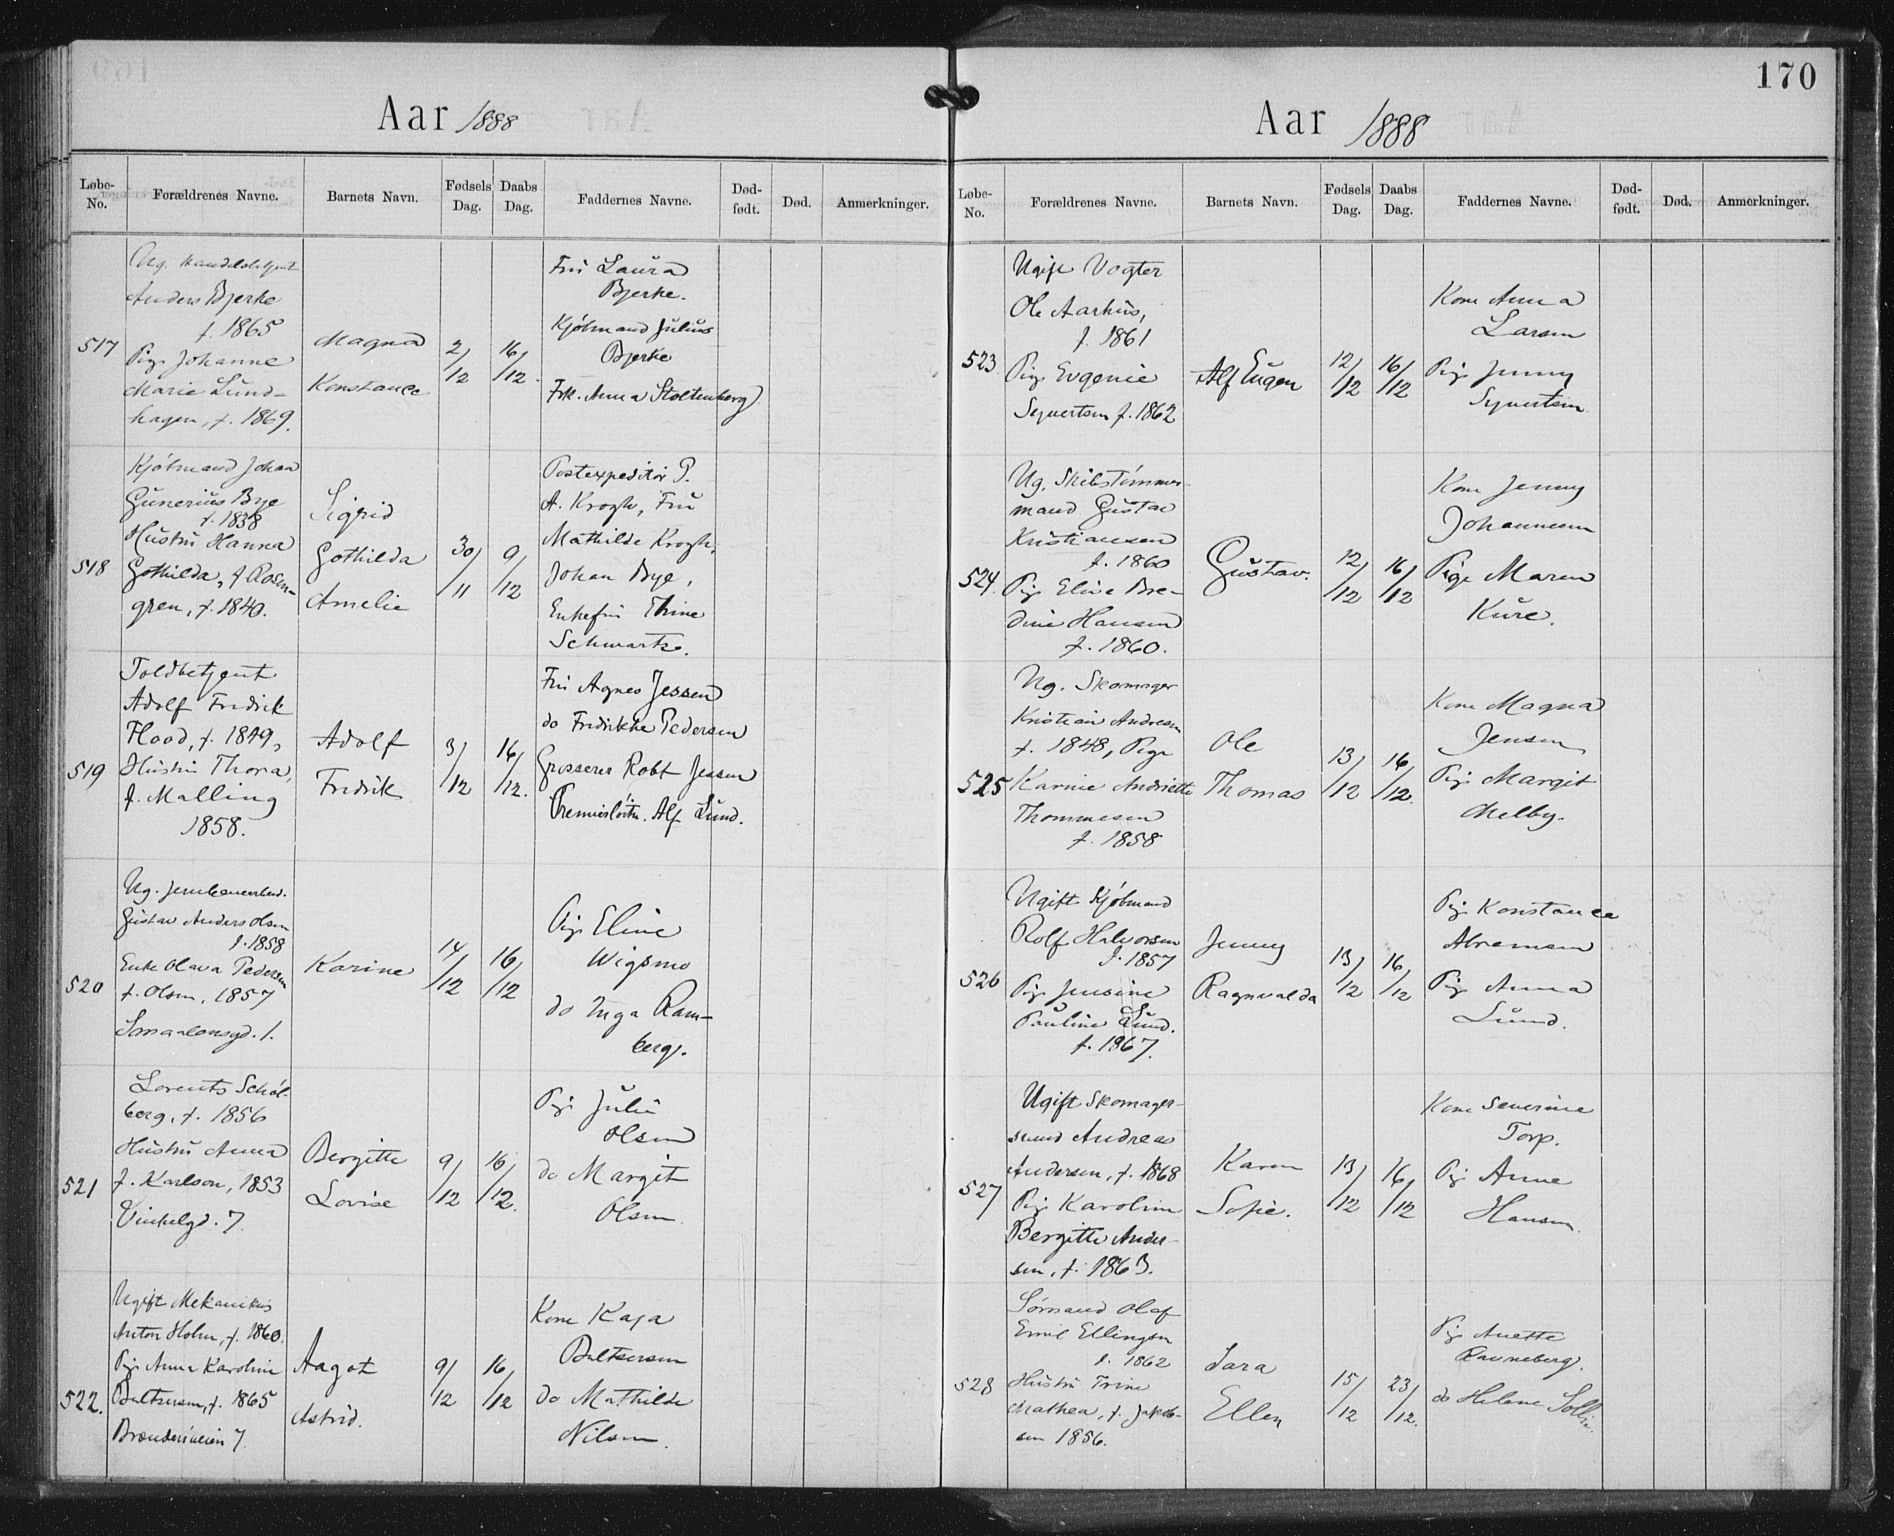 170
Aar 1888
Løbe-No. Forældrenes Navne. Barnets Navn. Fødsels Dag. Daabs Dag. Faddernes Navne. Død-født. Død. Anmerkninger.
517
Ug. Handelsbetjent
Anders Bjerke
f. 1865
Pige Johanne
Marie Lund-
hagen, f. 1869.
Magna
Konstance
2/12
16/12.
Fru Laura
Bjerke.
Kjøbmand Julius
Bjerke
Frk. Anna Stoltenberg
518
Kjøbmand Johan
Gunerius Bye
f. 1838
Hustru Hanna
Gothilda, f. Rosen-
gren, f. 1840.
Sigrid
Gothilda
Amelie
30/11
9/12
Postexpeditør P.
A. Krogh, Fru
Mathilde Krogh,
Johan Bye,
Enkefru Thine
Schwartz.
519
Toldbetjent
Adolf Fredrik
Flood, f. 1849,
Hustru Thora,
f. Malling
1858.
Adolf
Fredrik
3/12
16/12.
Fru Agnes Jessen
do Fredrikke Pedersen
Grosserer Robt Jessen
Premierløitn. Alf Lund.
520
Gustav Anders Olsen
f. 1858
Enke Olava Pedersen
f. Olsen, 1857
Smaalensgd. 1.
Karine
14/12
16/12
Pige Eline
Wigsmo
do Inga Ram-
berg.
521
Lorents Schøl-
berg, f. 1856
Hustru Anna
f. Karlson, 1853
Vinkelgd. 7.
Bergitte
Lovise
9/12
16/12.
Pige Julie
Olsen
do Margit
Olsen.
522.
Ugift Mekanikus
Anton Holm, f. 1860.
Pige Anna Karoline
Baltsersen, f. 1865
7.
Aagot
Astrid.
9/12
16/12
Kone Kaja
Baltsersen
do Mathilde
Nilsen.
Aar 1888
Løbe-No. Forældrenes Navne. Barnets Navn. Fødsels Dag. Daabs Dag. Faddernes Navne. Død-født. Død. Anmerkninger.
523.
Ugift Vogter
Ole Aarhus,
f. 1861
Pige Evgenie
Syvertsen f. 1862
Alf Eugen
12/12
16/12
Kone Anna
Larsen
Pige Jenny
Syvertsen.
524.
Ug. Skibstømmer-
mand Gustav
Kristiansen
f. 1860
Pige Eline Bre-
dine Hansen
f. 1860.
Gustav.
12/12
16/12
Kone Jenny
Johannesen
Pige Maren
Kure.
525
Ug. Skomager
Kristian Andresen
f. 1848, Pige
Karine Andriette
Thommesen
f. 1858
Ole
Thomas
13/12
16/12.
Kone Magna
Jensen
Pige Margit
Melby.
526
Ugift Kjøbmand
Rolf Halvorsen
f. 1857
Pige Jensine
Pauline Lund.
f. 1867.
Jenny
Ragnvalda
13/12
16/12
Pige Konstance
Abramsen
Pige Anna
Lund.
527
Ugift Skomager-
svend Andreas
Andersen, f. 1868
Pige Karoline
Bergitte Ander-
sen, f. 1863.
Karen
Sofie.
13/12
16/12
Kone Severine
Torp.
Pige Anne
Hansen.
528
Sømand Olaf
Emil Ellingsen
f. 1862
Hustru Trine
Mathea, f. Jakob-
sen 1856.
Sara
Ellen
15/12
23/12.
Pige Anette
Ravneberg.
do Helene